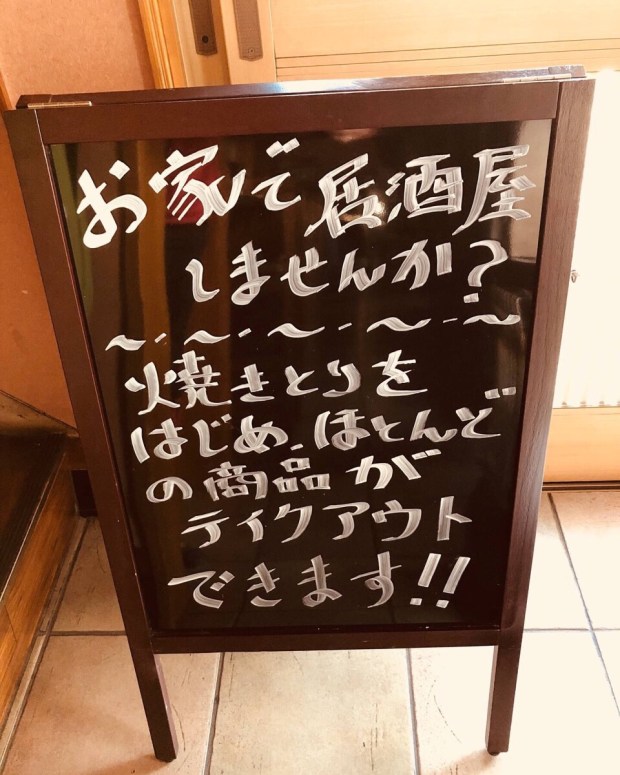 お家で居酒屋
しませんか?
～・～・～・～・～
焼きとりを
はじめ、ほとんど
の商品が
テイクアウト
できます!!